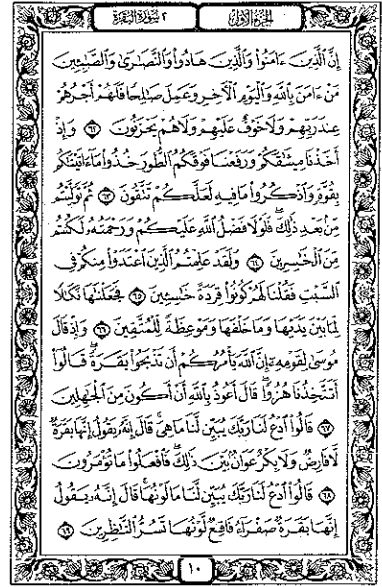 الجزء الأول
٢ سورة البقرة
إِنَّ الَّذِينَ ءَامَنُوا وَالَّذِينَ هَادُوا وَالنَّصَارَىٰ وَالصَّابِئِينَ
مَنْ ءَامَنَ بِاللَّهِ وَالْيَوْمِ الْآخِرِ وَعَمِلَ صَالِحًا فَلَهُمْ أَجْرُهُمْ
عِندَ رَبِّهِمْ وَلَا خَوْفٌ عَلَيْهِمْ وَلَا هُمْ يَحْزَنُونَ ٦٢ وَإِذْ
أَخَذْنَا مِيثَاقَكُمْ وَرَفَعْنَا فَوْقَكُمُ الطُّورَ خُذُوا مَا ءَاتَيْنَاكُم
بِقُوَّةٍ وَاذْكُرُوا مَا فِيهِ لَعَلَّكُمْ تَتَّقُونَ ٦٣ ثُمَّ تَوَلَّيْتُم
مِّن بَعْدِ ذَٰلِكَ ۖ فَلَوْلَا فَضْلُ اللَّهِ عَلَيْكُمْ وَرَحْمَتُهُ لَكُنتُم
مِّنَ الْخَاسِرِينَ ٦٤ وَلَقَدْ عَلِمْتُمُ الَّذِينَ اعْتَدَوْا مِنكُمْ فِي
السَّبْتِ فَقُلْنَا لَهُمْ كُونُوا قِرَدَةً خَاسِئِينَ ٦٥ فَجَعَلْنَاهَا نَكَالًا
لِّمَا بَيْنَ يَدَيْهَا وَمَا خَلْفَهَا وَمَوْعِظَةً لِّلْمُتَّقِينَ ٦٦ وَإِذْ قَالَ
مُوسَىٰ لِقَوْمِهِ إِنَّ اللَّهَ يَأْمُرُكُمْ أَن تَذْبَحُوا بَقَرَةً ۖ قَالُوا
أَتَتَّخِذُنَا هُزُوًا ۖ قَالَ أَعُوذُ بِاللَّهِ أَنْ أَكُونَ مِنَ الْجَاهِلِينَ
٦٧ قَالُوا ادْعُ لَنَا رَبَّكَ يُبَيِّن لَّنَا مَا هِيَ ۚ قَالَ إِنَّهُ يَقُولُ إِنَّهَا بَقَرَةٌ
لَّا فَارِضٌ وَلَا بِكْرٌ عَوَانٌ بَيْنَ ذَٰلِكَ ۖ فَافْعَلُوا مَا تُؤْمَرُونَ
٦٨ قَالُوا ادْعُ لَنَا رَبَّكَ يُبَيِّن لَّنَا مَا لَوْنُهَا ۚ قَالَ إِنَّهُ يَقُولُ
إِنَّهَا بَقَرَةٌ صَفْرَاءُ فَاقِعٌ لَّوْنُهَا تَسُرُّ النَّاظِرِينَ ٦٩
١٠